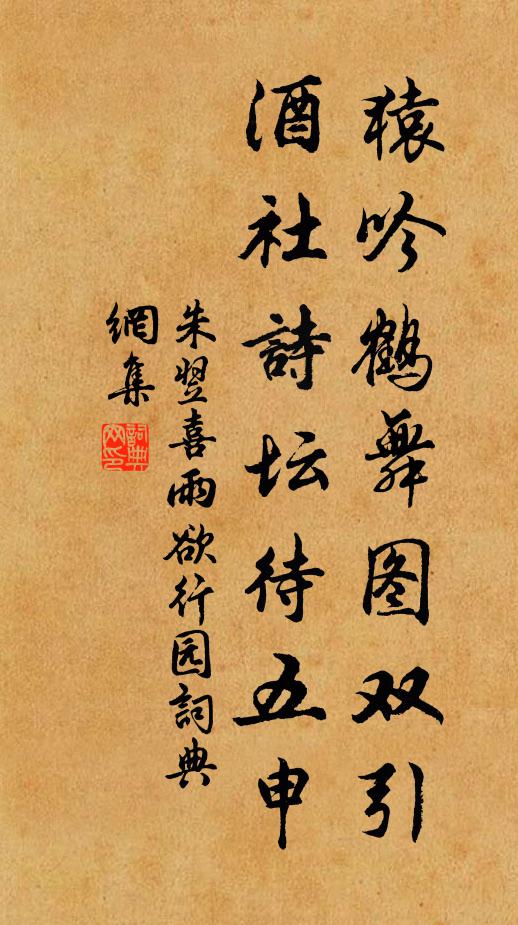 猿吟鹤舞图双引
酒社詩坛待五申
朱翌喜雨欲行园詞典
網集
詞典
网印